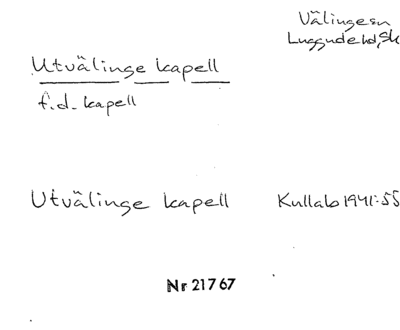 Välinge sn
Luggude hd, Sk
Utvälinge kapell
f.d. kapell
Utvälinge kapell Kullab 1941:55
Nr 21767